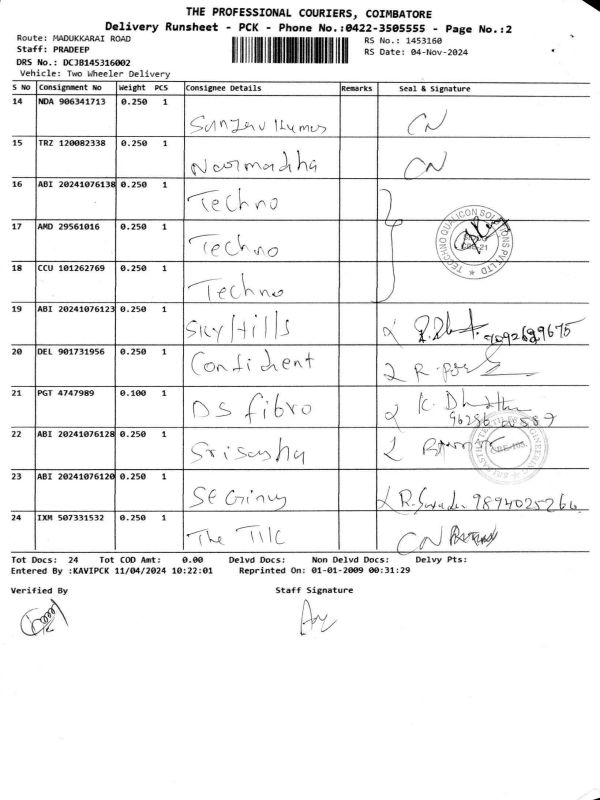 THE PROFESSIONAL COURIERS, COIMBATORE
Delivery Runsheet - PCK - Phone No.:0422-3505555 - Page No.:2
Route: MADUKKARAI ROAD
RS No.: 1453160
Staff: PRADEEP
RS Date: 04-Nov-2024
DRS No.: DCJB145316002
Vehicle: Two Wheeler Delivery
S No Consignment No Weight PCS Consignee Details Remarks Seal & Signature
14 NDA 906341713 0.250 1
CN
15 TRZ 120082338 0.250 1
CN
16 ABI 20241076138 0.250 1
Techno
17 AMD 29561016 0.250 1
Techno
TECCHNO QUALICON SOLUTIONS PVT LTD
18 CCU 101262769 0.250 1
Techno
19 ABI 20241076123 0.250 1
Sky Hills
20 DEL 901731956 0.250 1
Confident
21 PGT 4747989 0.100 1
DS fibro
22 ABI 20241076128 0.250 1
23 ABI 20241076120 0.250 1
9894025266
24 IXM 507331532 0.250 1
The Tile
CN
Tot Docs: 24 Tot COD Amt: 0.00 Delvd Docs: Non Delvd Docs: Delvy Pts:
Entered By :KAVIPCK 11/04/2024 10:22:01 Reprinted On: 01-01-2009 00:31:29
Verified By Staff Signature